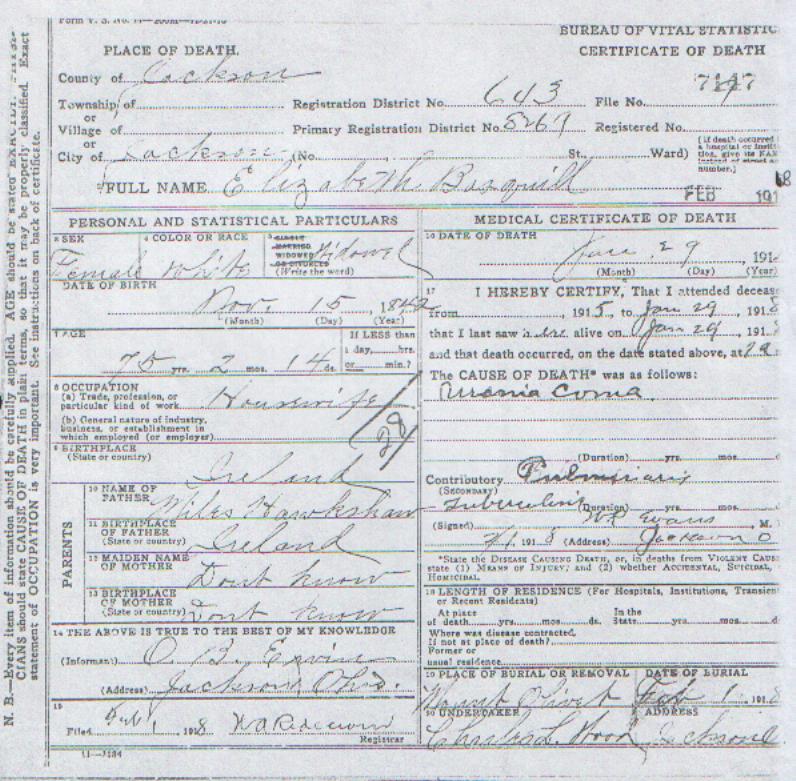 Form V. S. No.
BUREAU OF VITAL STATISTIC
PLACE OF DEATH.
CERTIFICATE OF DEATH
County of Jackson
Township of
Registration District No. 643
File No.
or
Village of
Primary Registration District No. 5269
Registered No.
or
City of Jackson (No.
St., Ward)
(If death occurred
a hospital or instit
tion, give its NAM
instead of street a
number.)
FULL NAME Elizabeth Basquill
FEB 1918
PERSONAL AND STATISTICAL PARTICULARS
3 SEX
Female
4 COLOR OR RACE
White
5 SINGLE
MARRIED
WIDOWED
OR DIVORCED
(Write the word)
Widowed
DATE OF BIRTH
Nov. 15, 1842
(Month) (Day) (Year)
7 AGE
75 yrs. 2 mos. 14 ds.
If LESS than
1 day, hrs.
or min.?
8 OCCUPATION
(a) Trade, profession, or
particular kind of work Housewife
(b) General nature of industry,
business, or establishment in
which employed (or employer)
28
9 BIRTHPLACE
(State or country)
Ireland
PARENTS
10 NAME OF
FATHER
Miles Hawkshaw
11 BIRTHPLACE
OF FATHER
(State or country)
Ireland
12 MAIDEN NAME
OF MOTHER
Dont know
13 BIRTHPLACE
OF MOTHER
(State or country)
Dont know
14 THE ABOVE IS TRUE TO THE BEST OF MY KNOWLEDGE
(Informant) O. B. Ervine
(Address) Jackson, Ohio.
15
Filed Feb 1, 1918
Registrar
11-7184
MEDICAL CERTIFICATE OF DEATH
16 DATE OF DEATH
Jan. 29, 191
(Month) (Day) (Year)
17 I HEREBY CERTIFY, That I attended deceas
from , 1915, to Jan 29, 1918
that I last saw her alive on Jan 29, 191
and that death occurred, on the date stated above, at
The CAUSE OF DEATH* was as follows:
Uremia Coma
(Duration) yrs. mos. d
Contributory
(SECONDARY)
Tuberculosis
(Duration) yrs. mos.
(Signed) W R Evans M.
2/1 1918 (Address) Jackson O
*State the DISEASE CAUSING DEATH, or, in deaths from VIOLENT CAUS
state (1) MEANS OF INJURY; and (2) whether ACCIDENTAL, SUICIDAL,
HOMICIDAL.
18 LENGTH OF RESIDENCE (For Hospitals, Institutions, Transien
or Recent Residents)
At place In the
of death yrs. mos. ds. State yrs. mos. d
Where was disease contracted,
If not at place of death?
Former or
usual residence
19 PLACE OF BURIAL OR REMOVAL
Mount Olivet
DATE OF BURIAL
Feb 1 1918
20 UNDERTAKER
Wood
ADDRESS
Jackson
N. B.—Every item of information should be carefully supplied. AGE should be stated EXACTLY.
CIANS should state CAUSE OF DEATH in plain terms, so that it may be properly classified. Exact
statement of OCCUPATION is very important. See instructions on back of certificate.